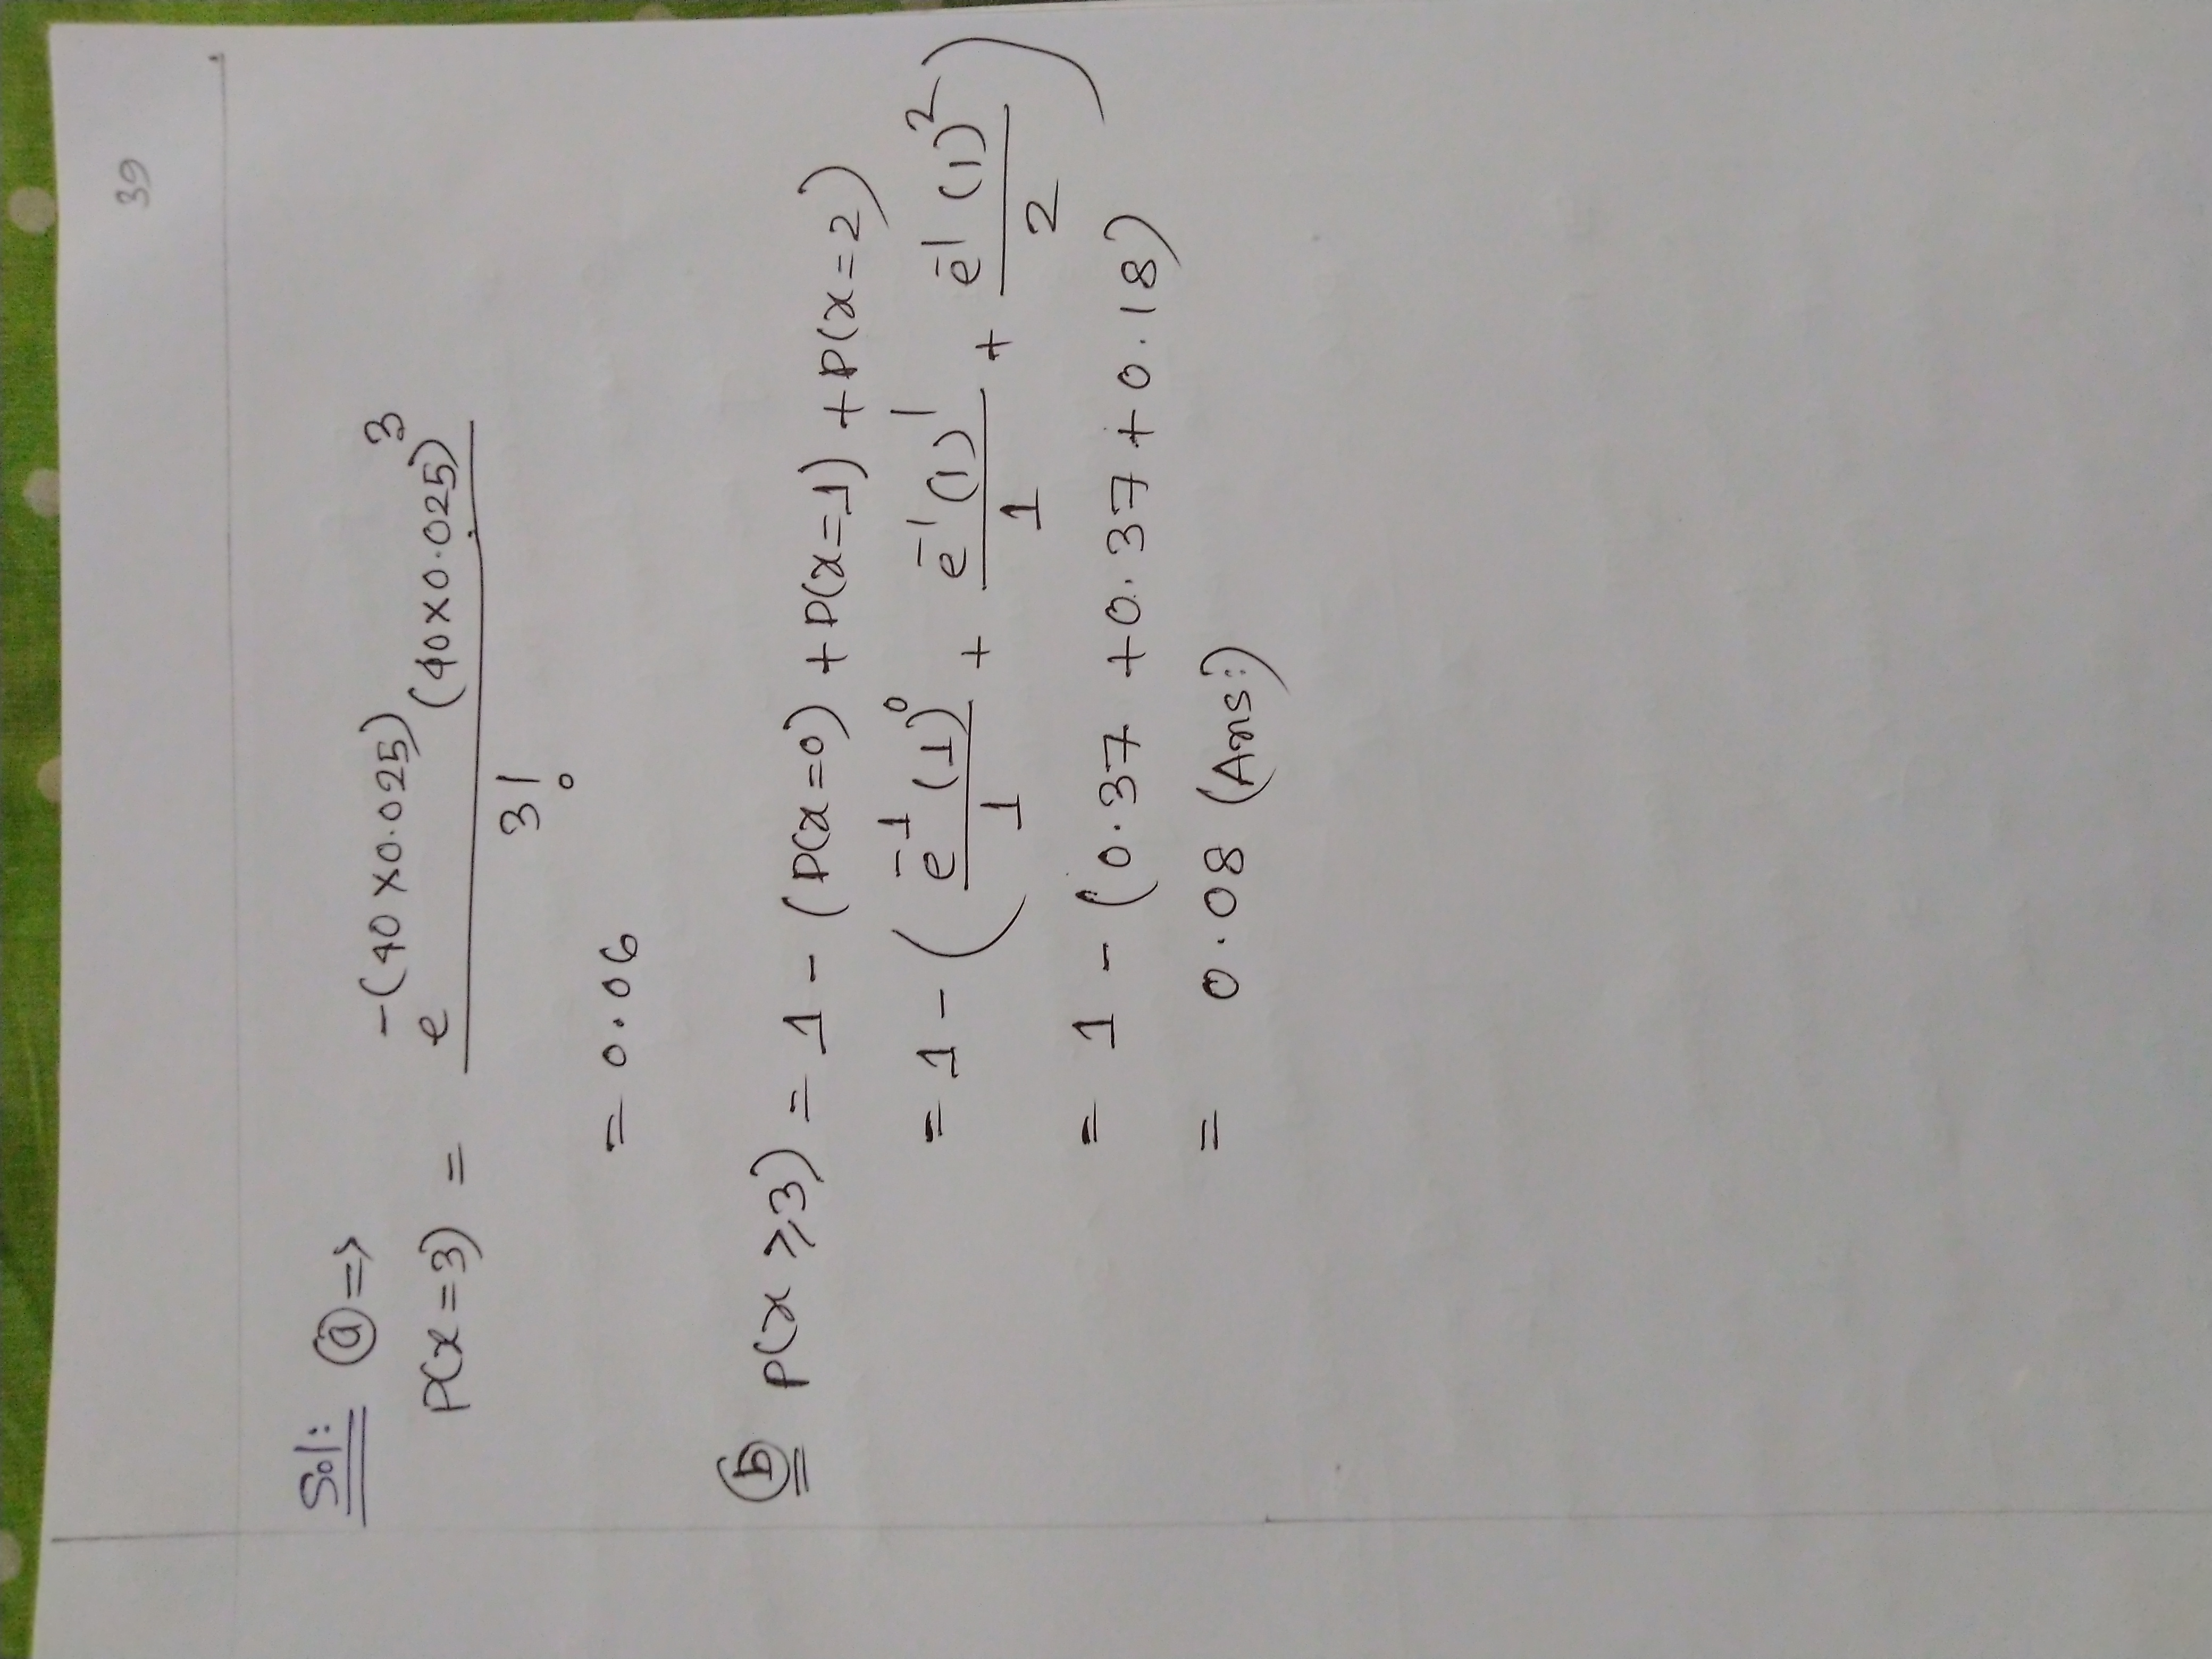 39
Sol: ⓐ =>
P(x=3) = e^-(40×0.025) (40×0.025)^3 / 3!
= 0.06
ⓑ P(x ⩾ 3) = 1 - (P(x=0) + P(x=1) + P(x=2)
= 1 - ( e^-1 (1)^0 / 1 + e^-1 (1)^1 / 1 + e^-1 (1)^2 / 2 )
= 1 - (0.37 + 0.37 + 0.18)
= 0.08 (Ans:)